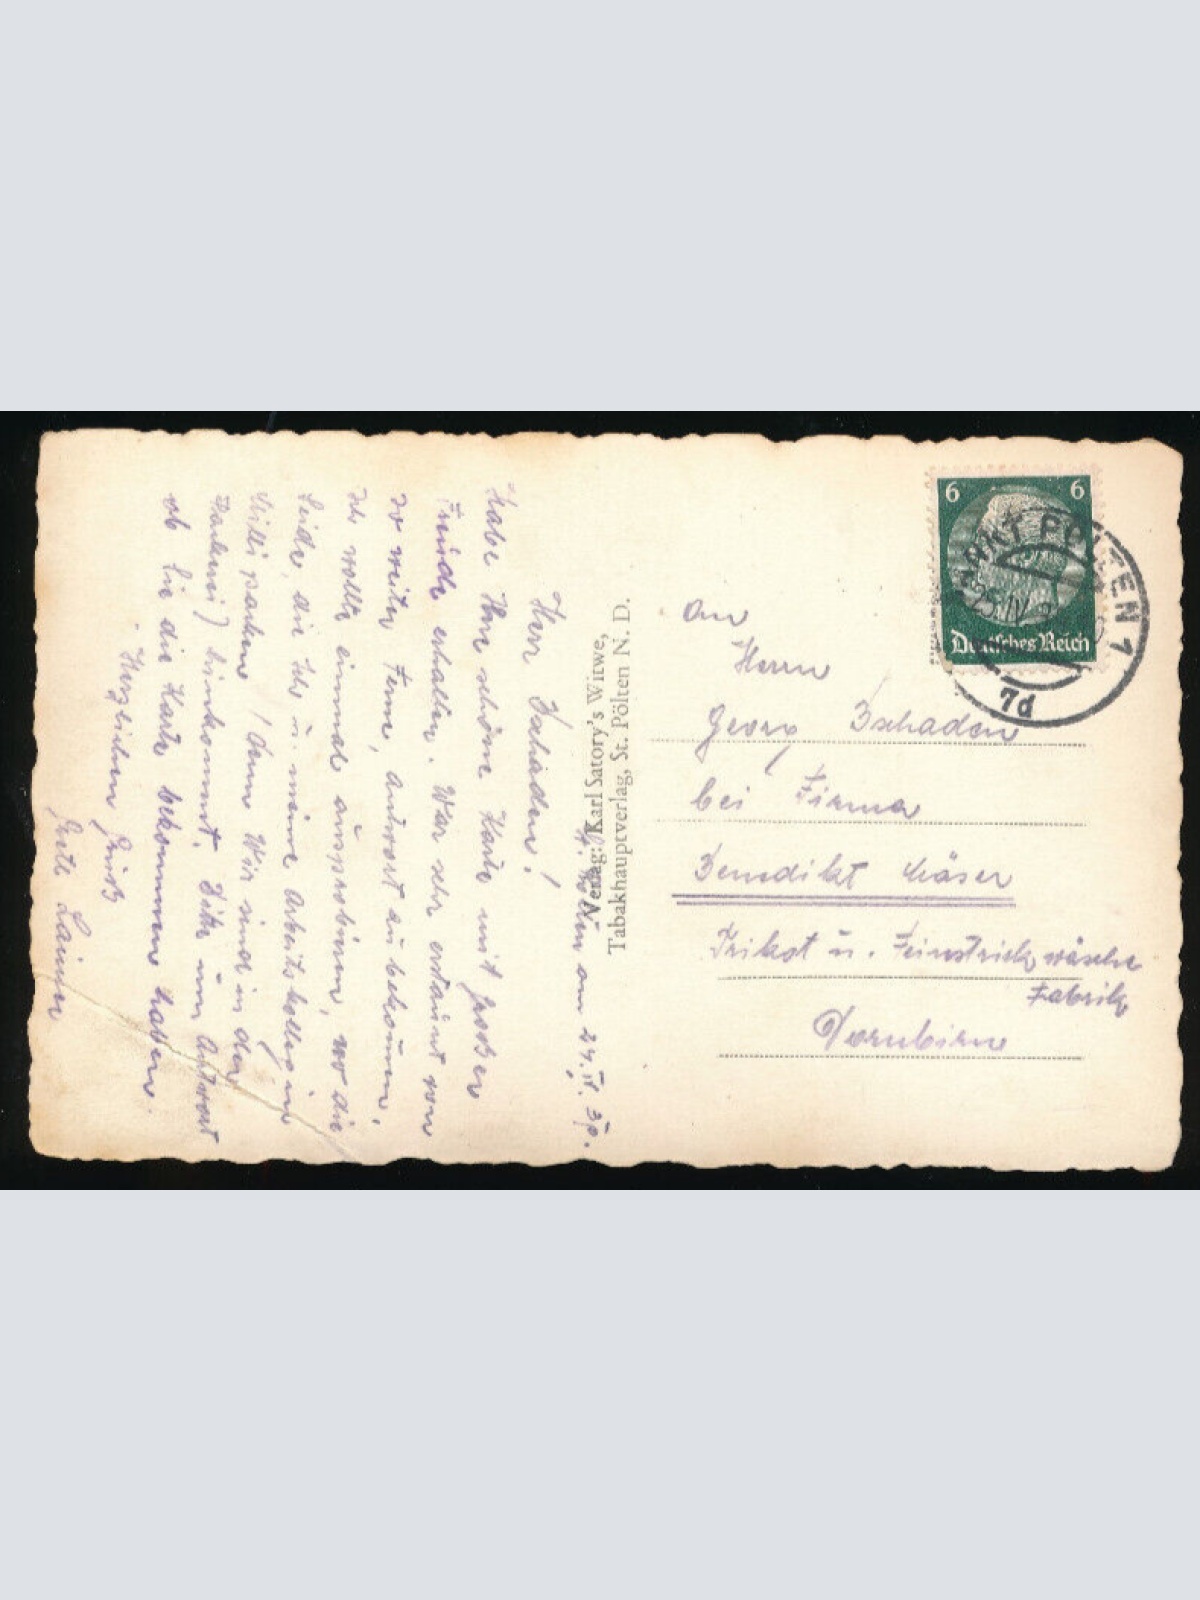 St. Pölten am 24. IV. 39.
Herr Zschaden!
Habe Ihre schöne Karte mit großer
Freude erhalten. War sehr erstaunt von
so weiter Ferne, Antwort zu bekommen.
Ich wollte einmal ausprobieren, wo die
Seide, die Ich u. meine Arbeitskollegin
Milli packen (denn Wir sind in der
Packerei) hinkommt. Bitte um Antwort
ob Sie die Karte bekommen haben.
Herzlichen Gruß
Lainer
Verlag: Karl Satory's Witwe,
Tabakhauptverlag, St. Pölten N. D.
6 6
Deutsches Reich
SANKT PÖLTEN 1
25. IV
7d
An
Herrn
Georg Zschaden
bei Firma
Benedikt Mäser
Trikot u. Feinstrickwäsche
Fabrik
Dornbirn